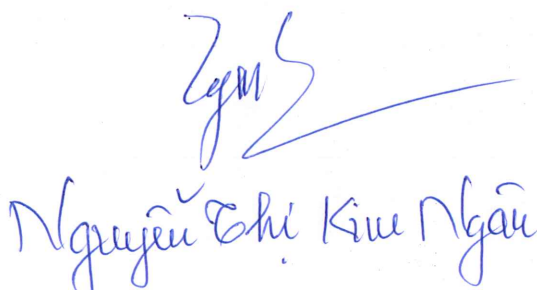 Nguyễn Thị Kim Ngân